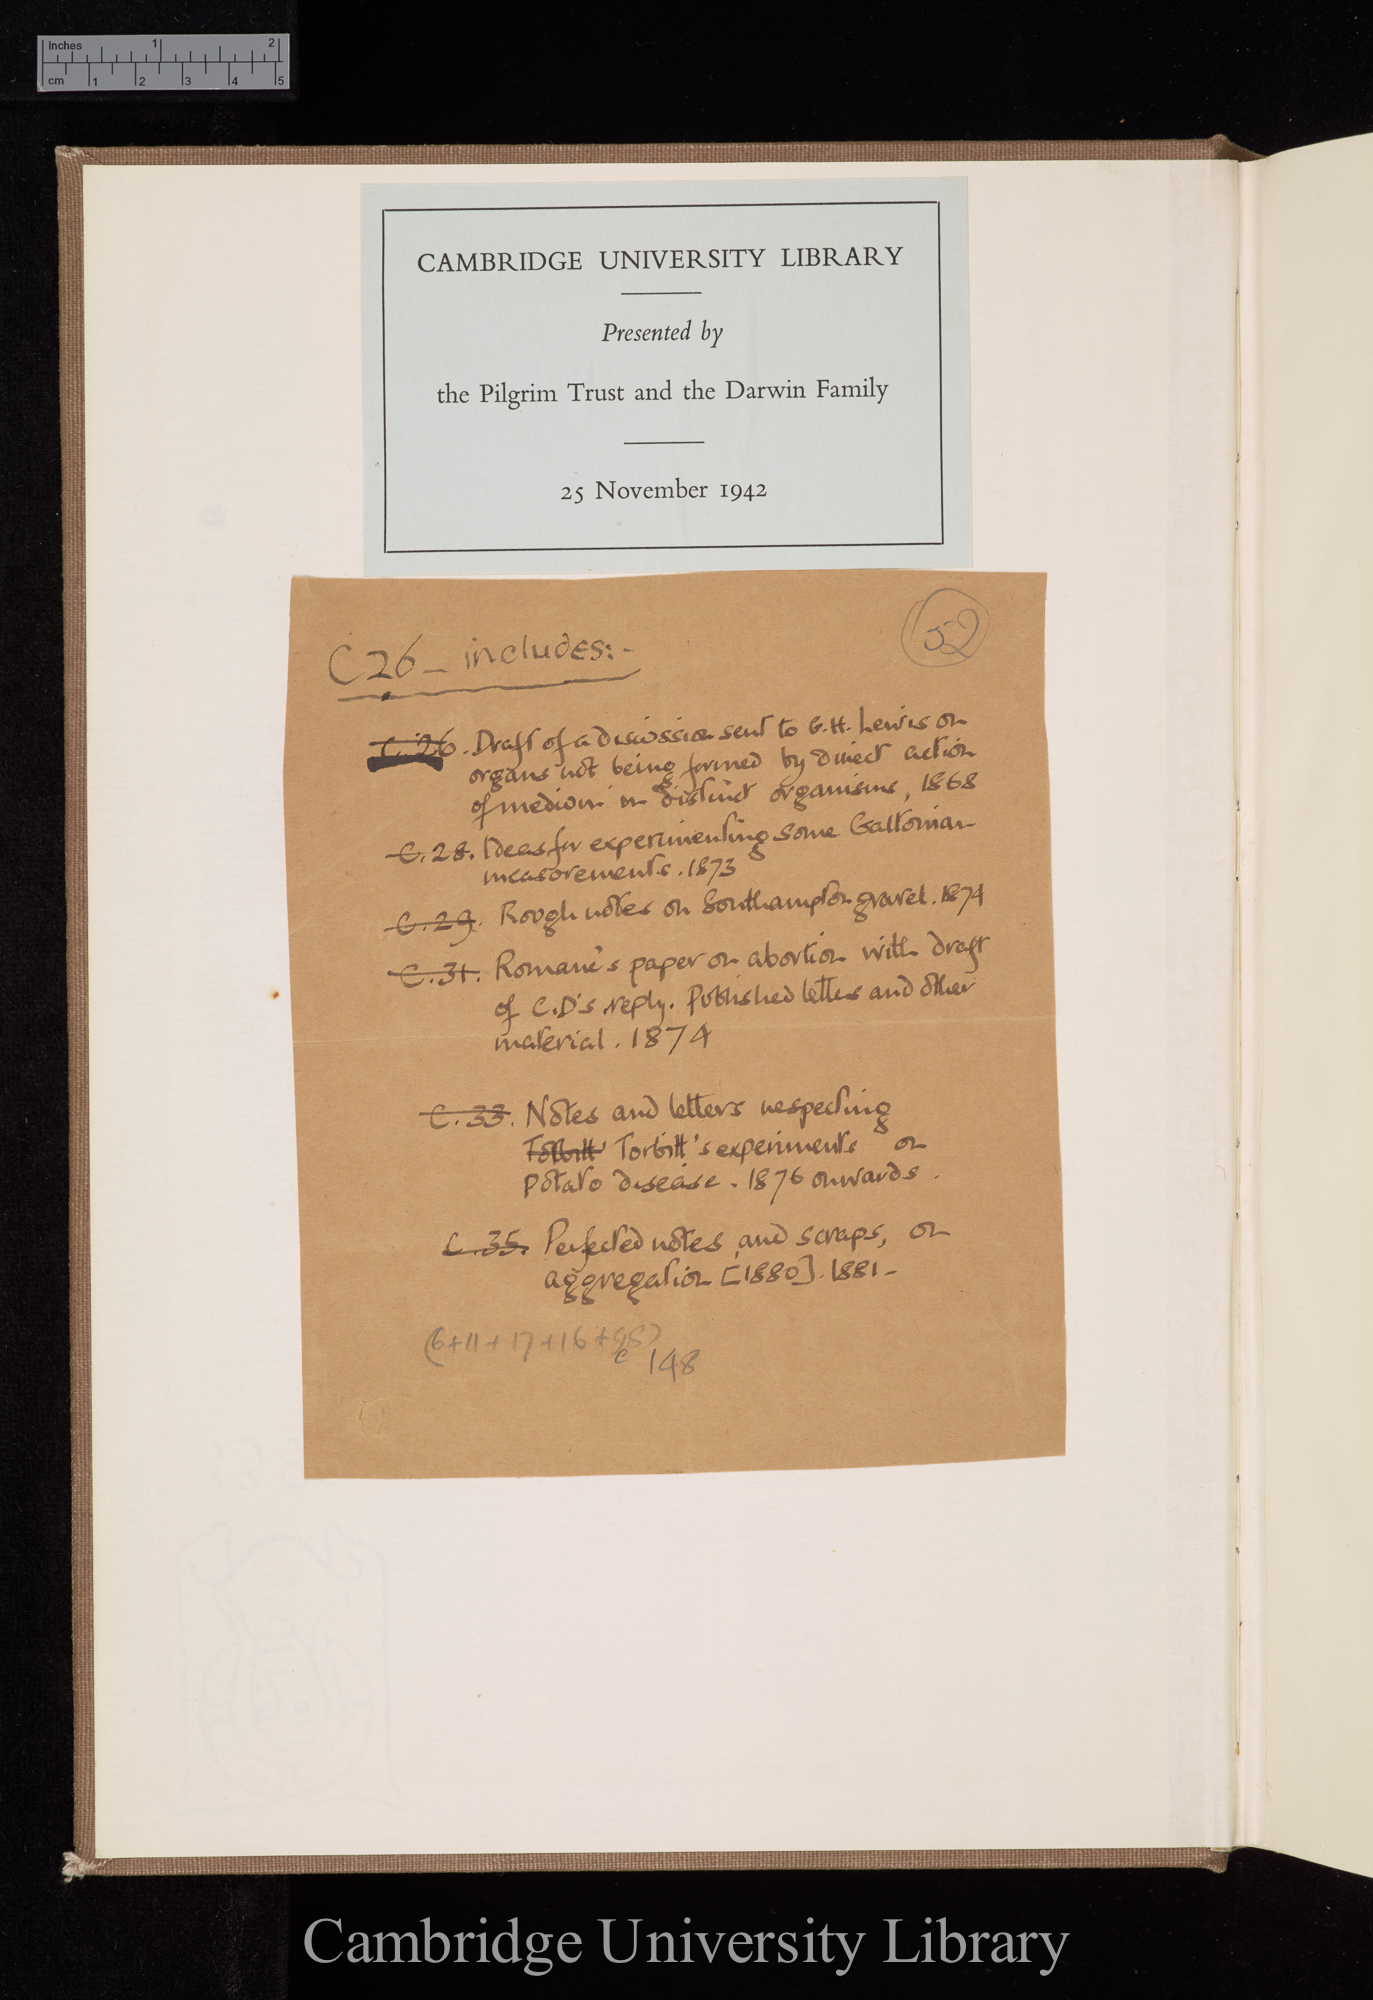 Inches 1 2
cm 1 2 3 4 5
CAMBRIDGE UNIVERSITY LIBRARY
Presented by
the Pilgrim Trust and the Darwin Family
25 November 1942
52
C26 - includes:-
C.26. Draft of a discussion sent to G.H. Lewis on
organs not being formed by direct action
of medium in distinct organisms, 1868
C.28. Ideas for experimenting some Galtonian
measurements. 1873
C.29. Rough notes on Southampton gravel. 1874
C.31. Romane's paper on abortion with draft
of C.D's reply. Published letters and other
material. 1874
C.33. Notes and letters respecting
Tolbitt' Torbitt's experiments on
potato disease. 1876 onwards.
C.35. Perfected notes and scraps, on
aggregation [1880]. 1881-
(6+11+17+16+98)
c 148
Cambridge University Library